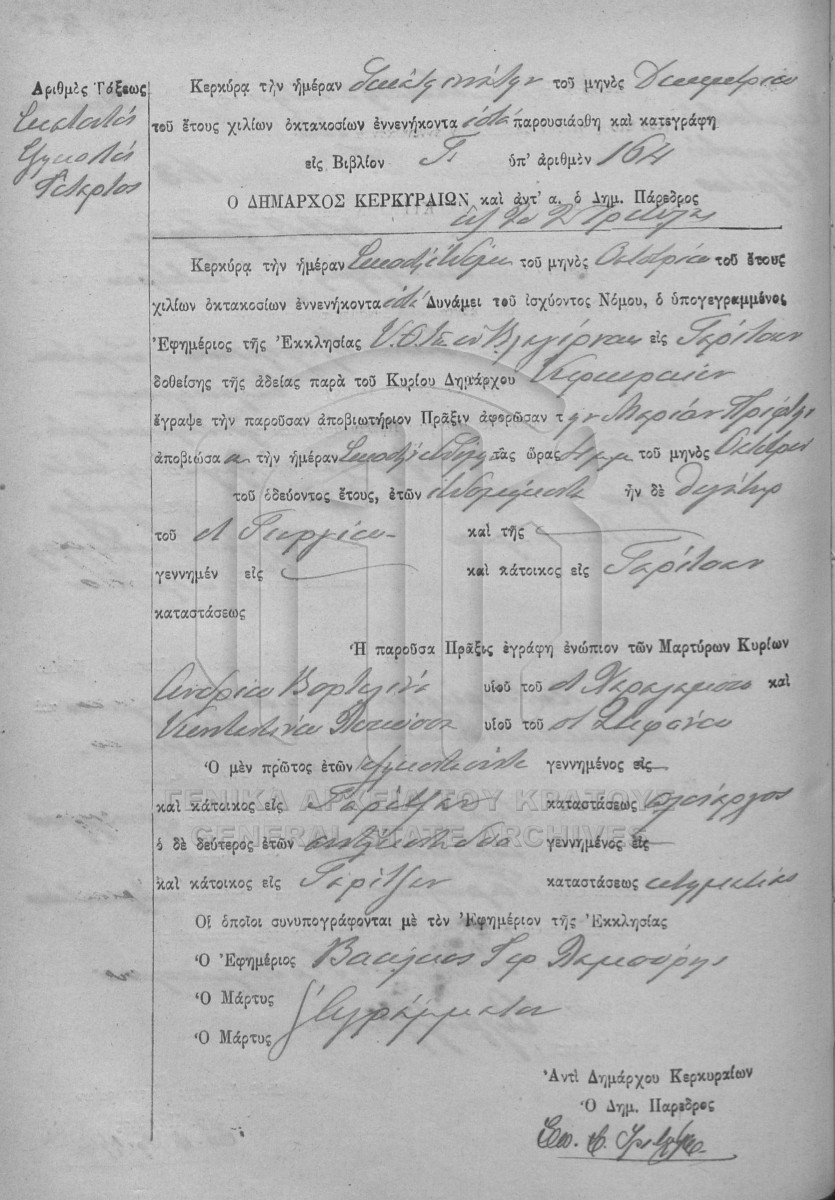 Ἀριθμὸς Τάξεως
Ἑκατοστός
Ἑξηκοστός
Τέταρτος
Κερκύρᾳ τὴν ἡμέραν δεκάτην ἐνάτην τοῦ μηνὸς Δεκεμβρίου
τοῦ ἔτους χιλίων ὀκτακοσίων ἐννενήκοντα ἑπτά παρουσιάσθη καὶ κατεγράφη
εἰς Βιβλίον Γ. ὑπ' ἀριθμὸν 164
Ὁ ΔΗΜΑΡΧΟΣ ΚΕΡΚΥΡΑΙΩΝ καὶ ἀντ' α. ὁ Δημ. Πάρεδρος
Κερκύρᾳ τὴν ἡμέραν εἰκοστὴν ἑβδόμην τοῦ μηνὸς Ὀκτωβρίου τοῦ ἔτους
χιλίων ὀκτακοσίων ἐννενήκοντα ἑπτά Δυνάμει τοῦ ἰσχύοντος Νόμου, ὁ ὑπογεγραμμένος
Ἐφημέριος τῆς Ἐκκλησίας Βλαχέρναι εἰς Γαρίτσαν
δοθείσης τῆς ἀδείας παρὰ τοῦ Κυρίου Δημάρχου Κερκυραίων
ἔγραψε τὴν παροῦσαν ἀποβιωτήριον Πρᾶξιν ἀφορῶσαν τ ὴν Μαρίαν
ἀποβιώσα α τὴν ἡμέραν εἰκοστὴν ἑβδόμην τὰς ὥρας τοῦ μηνὸς Ὀκτωβρίου
τοῦ ὁδεύοντος ἔτους, ἐτῶν ἑβδομήκοντα ἦν δὲ θυγάτηρ
τοῦ Γεωργίου καὶ τῆς
γεννημέν εἰς καὶ κάτοικος εἰς Γαρίτσαν
καταστάσεως
Ἡ παροῦσα Πρᾶξις ἐγράφη ἐνώπιον τῶν Μαρτύρων Κυρίων
Ἀνδρέου υἱοῦ τοῦ Χαραλάμπου καὶ
Κωνσταντίνου υἱοῦ τοῦ Στεφάνου
Ὁ μὲν πρῶτος ἐτῶν γεννημένος εἰς
καὶ κάτοικος εἰς Γαρίτζαν καταστάσεως
ΓΕΝΙΚΑ ΑΡΧΕΙΑ ΤΟΥ ΚΡΑΤΟΥΣ
GENERAL STATE ARCHIVES
ὁ δὲ δεύτερος ἐτῶν γεννημένος εἰς
καὶ κάτοικος εἰς Γαρίτζαν καταστάσεως κτηματίας
Οἱ ὁποῖοι συνυπογράφονται μὲ τὸν Ἐφημέριον τῆς Ἐκκλησίας
Ὁ Ἐφημέριος Βασίλειος
Ὁ Μάρτυς
Ὁ Μάρτυς ἀγράμματοι
Ἀντὶ Δημάρχου Κερκυραίων
Ὁ Δημ. Πάρεδρος